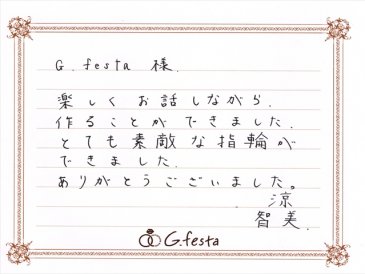 G. festa 様.
楽しくお話しながら.
作ることができました.
とても素敵な指輪が
できました.
ありがとうございました。
涼
智美.
G.festa